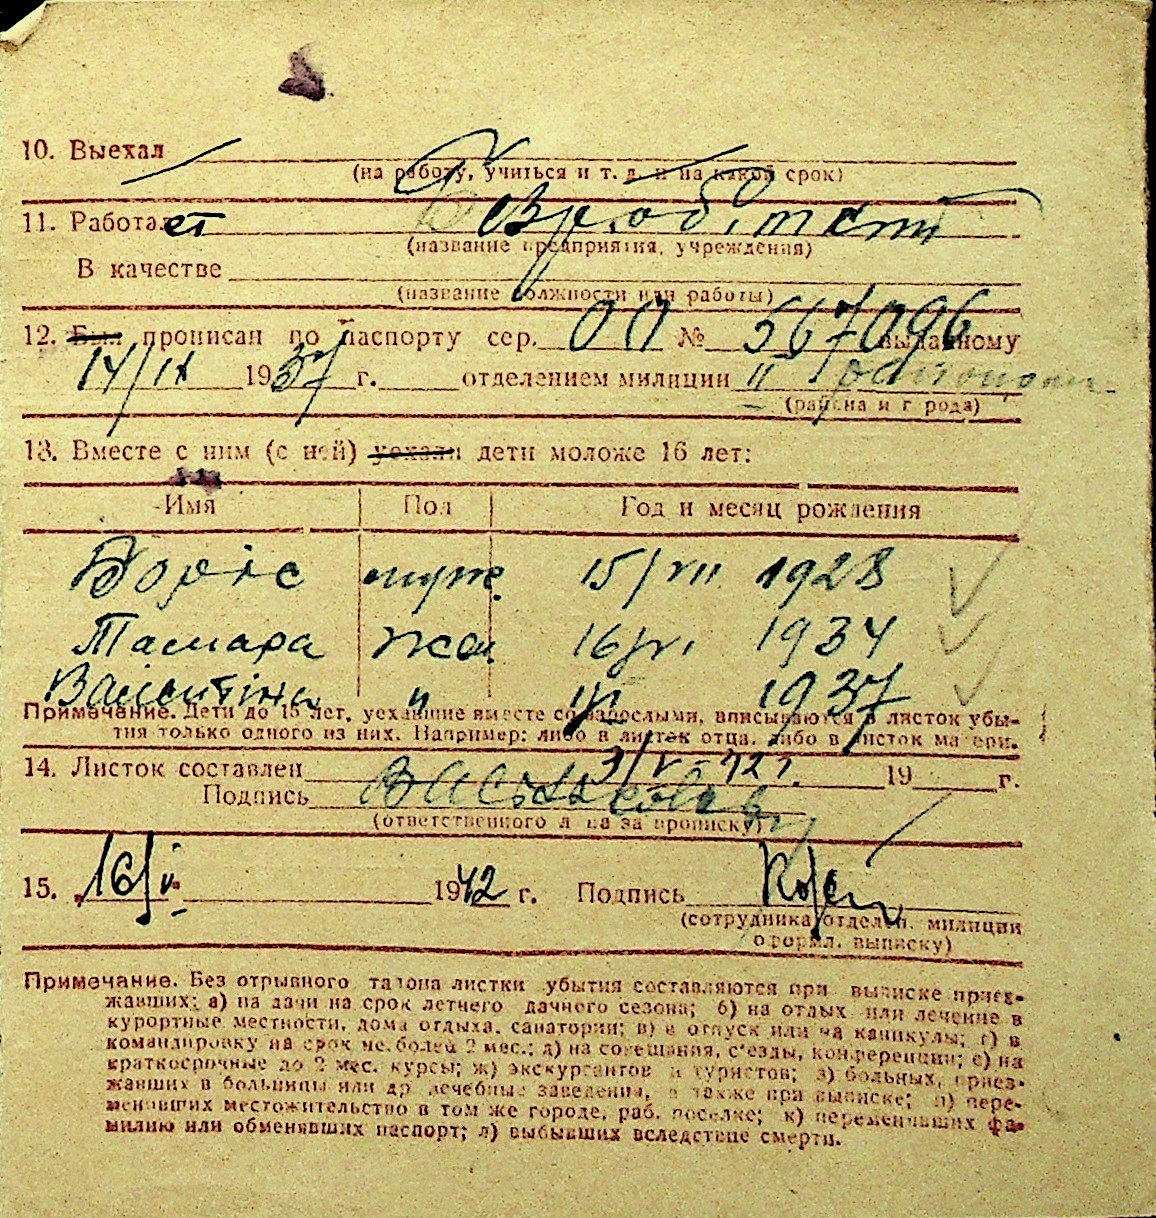 10. Выехал
(на работу, учиться и т. д. и на какой срок)
11. Работает Безробітний
(название предприятия, учреждения)
В качестве
(название должности или работы)
12. Был прописан по паспорту сер. ОП № 567096 выданному
14/IX 1937 г. отделением милиции II
(района и города)
13. Вместе с ним (с ней) уехали дети моложе 16 лет:
Имя Пол Год и месяц рождения
Борiс муж. 15/VII 1928
Тамара жен. 16/VI 1934
Валентiна " 1937
Примечание. Дети до 15 лет, уехавшие вместе со взрослыми, вписываются в листок убы-
тия только одного из них. Например: либо в листок отца, либо в листок матери.
14. Листок составлен 3/V-42 г. 19 г.
Подпись
(ответственного лица за прописку)
15. 16/V 1942 г. Подпись
(сотрудника отделен. милиции
оформл. выписку)
Примечание. Без отрывного талона листки убытия составляются при выписке приез-
жавших: а) на дачи на срок летнего дачного сезона; б) на отдых или лечение в
курортные местности, дома отдыха, санатории; в) в отпуск или на каникулы; г) в
командировку на срок не более 2 мес.; д) на совещания, с'езды, конференции; е) на
краткосрочные до 2 мес. курсы; ж) экскурсантов и туристов; з) больных, приез-
жавших в больницы или др. лечебные заведения, а также при выписке; и) пере-
менивших местожительство в том же городе, раб. поселке; к) переменивших фа-
милию или обменявших паспорт; л) выбывших вследствие смерти.